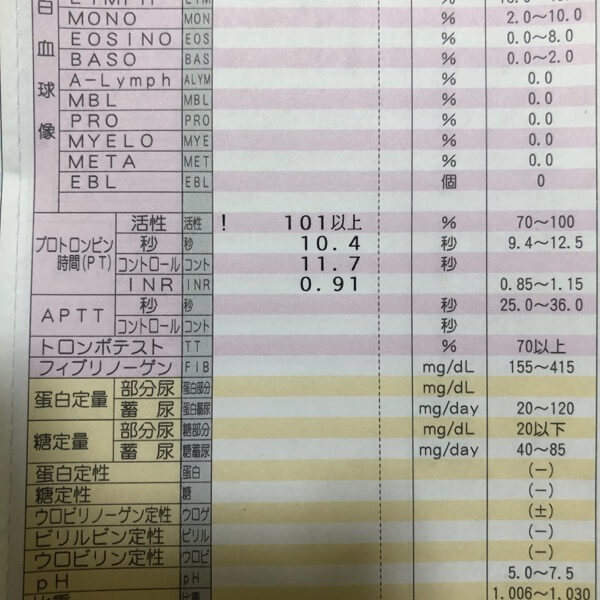 白血球像
MONO MON % 2.0～10.0
EOSINO EOS % 0.0～8.0
BASO BAS % 0.0～2.0
A-Lymph ALYM % 0.0
MBL MBL % 0.0
PRO PRO % 0.0
MYELO MYE % 0.0
META MET % 0.0
EBL EBL 個 0
プロトロンビン時間(PT) 活性 活性 ! 101以上 % 70～100
秒 秒 10.4 秒 9.4～12.5
コントロール コント 11.7 秒
INR INR 0.91 0.85～1.15
APTT 秒 秒 秒 25.0～36.0
コントロール コント 秒
トロンボテスト TT % 70以上
フィブリノーゲン FIB mg/dL 155～415
蛋白定量 部分尿 蛋白部分 mg/dL
蓄尿 蛋白蓄尿 mg/day 20～120
糖定量 部分尿 糖部分 mg/dL 20以下
蓄尿 糖蓄尿 mg/day 40～85
蛋白定性 蛋白 (－)
糖定性 糖 (－)
ウロビリノーゲン定性 ウロゲ (±)
ビリルビン定性 ビリル (－)
ウロビリン定性 ウロビ (－)
pH pH 5.0～7.5
比重 比重 1.006～1.030